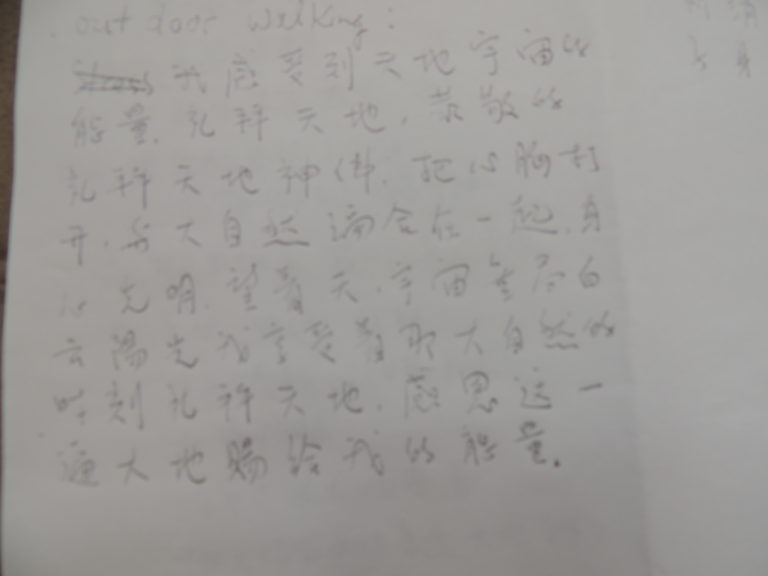 out door walking:
我感受到天地宇宙的
能量.礼拜天地,恭敬的
礼拜天地神佛.把心胸打
开.与大自然融合在一起.身
心光明.望着天.宇宙白
云陽光我享受着大自然的
時刻礼拜天地.感恩这一
大地赐给我的能量.